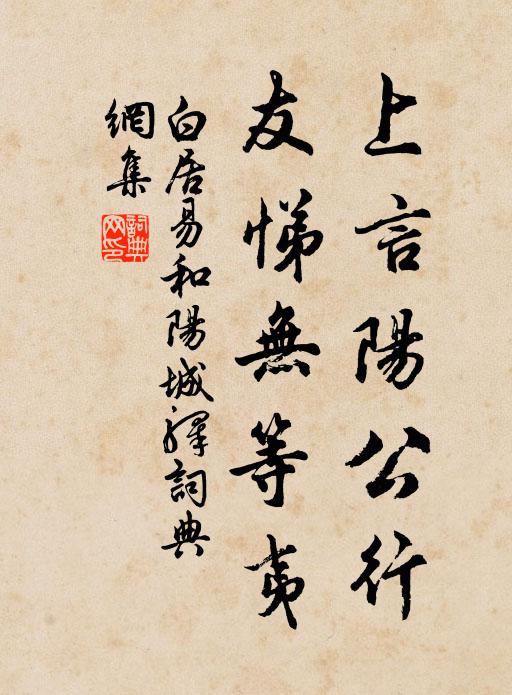 上言陽公行
友悌無等夷
白居易和陽城驛詞典
網集
詞典網印